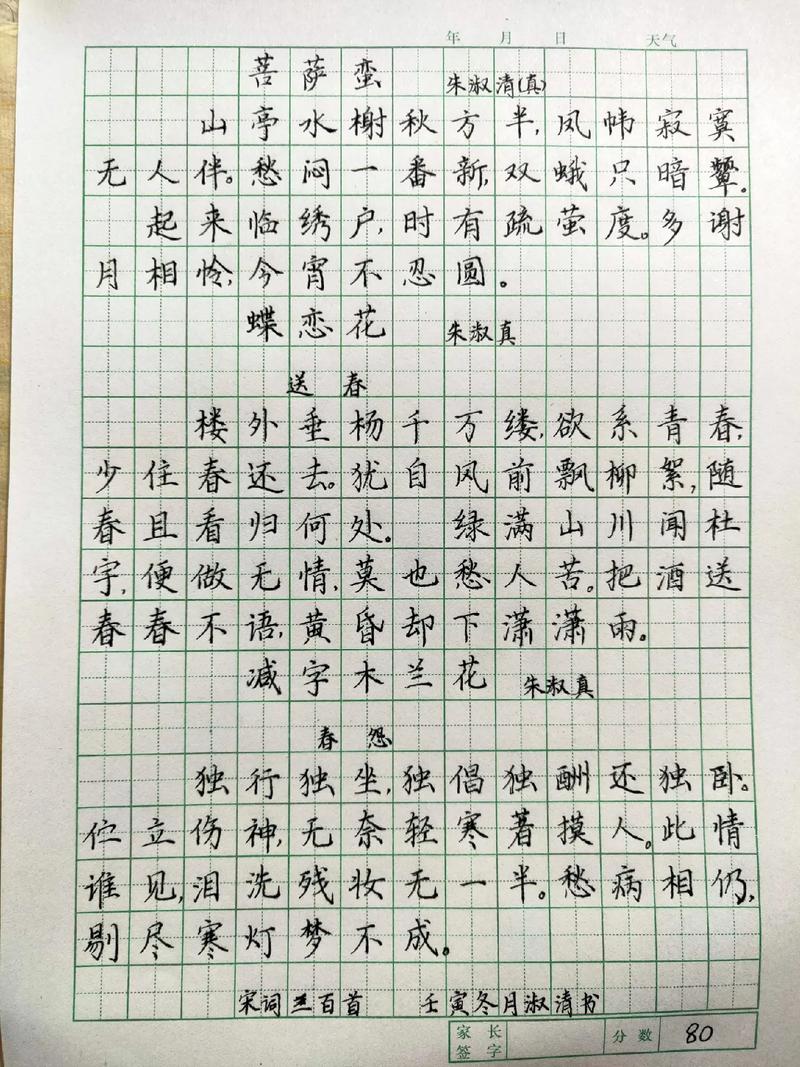 年 月 日 天气
菩萨蛮 朱淑清(真)
山亭水榭秋方半,凤帏寂寞
无人伴。愁闷一番新,双蛾只暗颦。
起来临绣户,时有疏萤度。多谢
月相怜,今宵不忍圆。
蝶恋花 朱淑真
送春
楼外垂杨千万缕,欲系青春,
少住春还去。犹自风前飘柳絮,随
春且看归何处。 绿满山川闻杜
字,便做无情,莫也愁人苦。把酒送
春春不语,黄昏却下潇潇雨。
减字木兰花 朱淑真
春怨
独行独坐,独倡独酬还独卧。
伫立伤神,无奈轻寒著摸人。此情
谁见,泪洗残妆无一半。愁病相仍,
剔尽寒灯梦不成。
宋词三百首 壬寅冬月淑清书
家长签字 分数 80